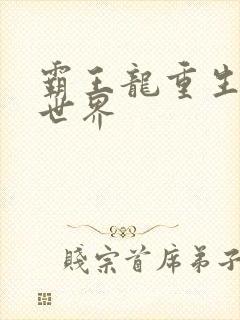 霸王龍重生
世界
賤宗首席弟子